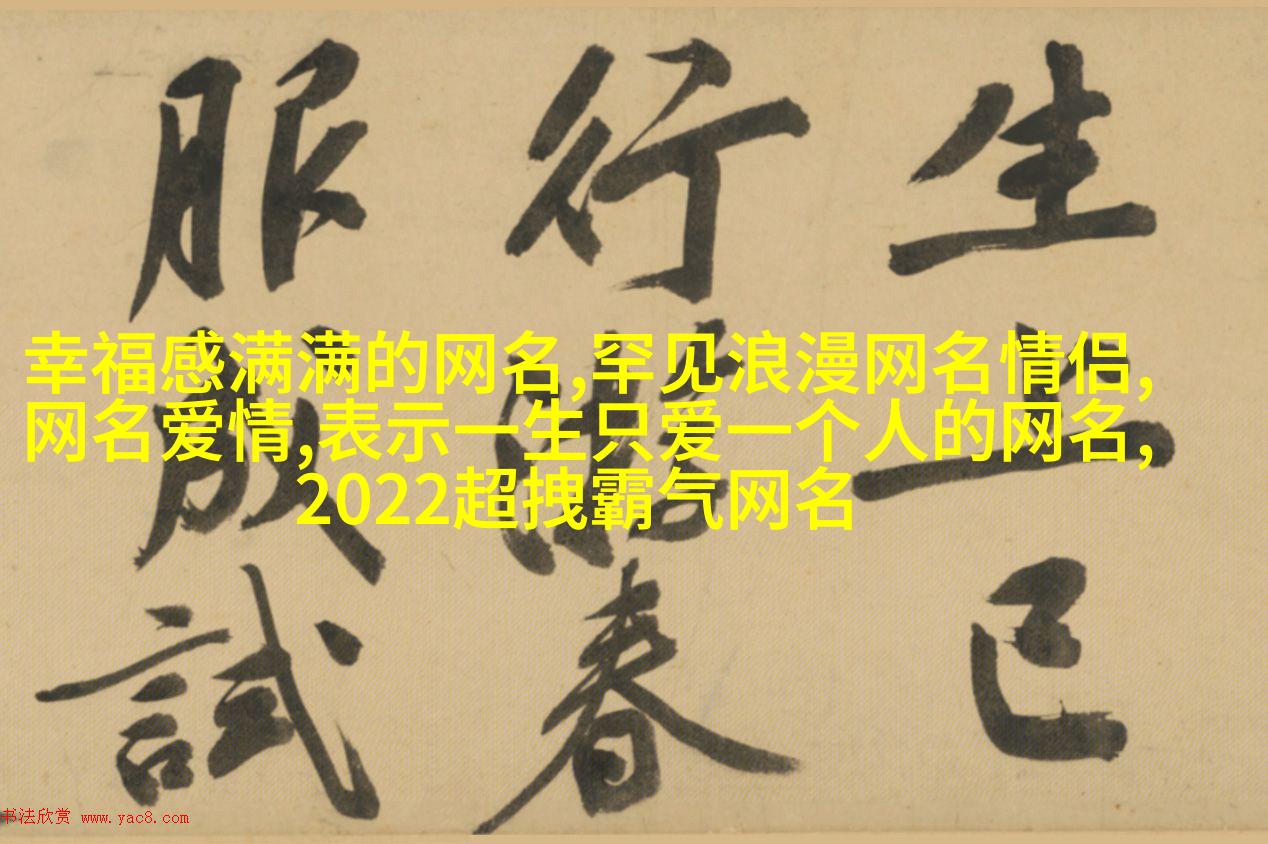 生上已
行春
服成試
幸福感满满的网名,罕见浪漫网名情侣,
网名爱情,表示一生只爱一个人的网名,
2022超拽霸气网名
书法欣赏 www.yac8.com